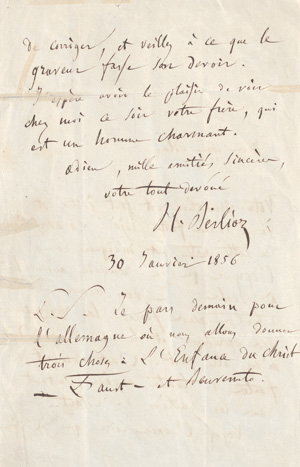 de corriger, et veillez à ce que le
graveur fasse son devoir.
J'espère avoir le plaisir de voir
chez moi ce soir votre frère, qui
est un homme charmant.
adieu, mille amitiés sincères,
votre tout dévoué
H. Berlioz
30 Janvier 1856
P.S. Je pars demain pour
l'allemagne où nous allons donner
trois choses à L'Enfance du Christ
Faust — et Benvenuto.